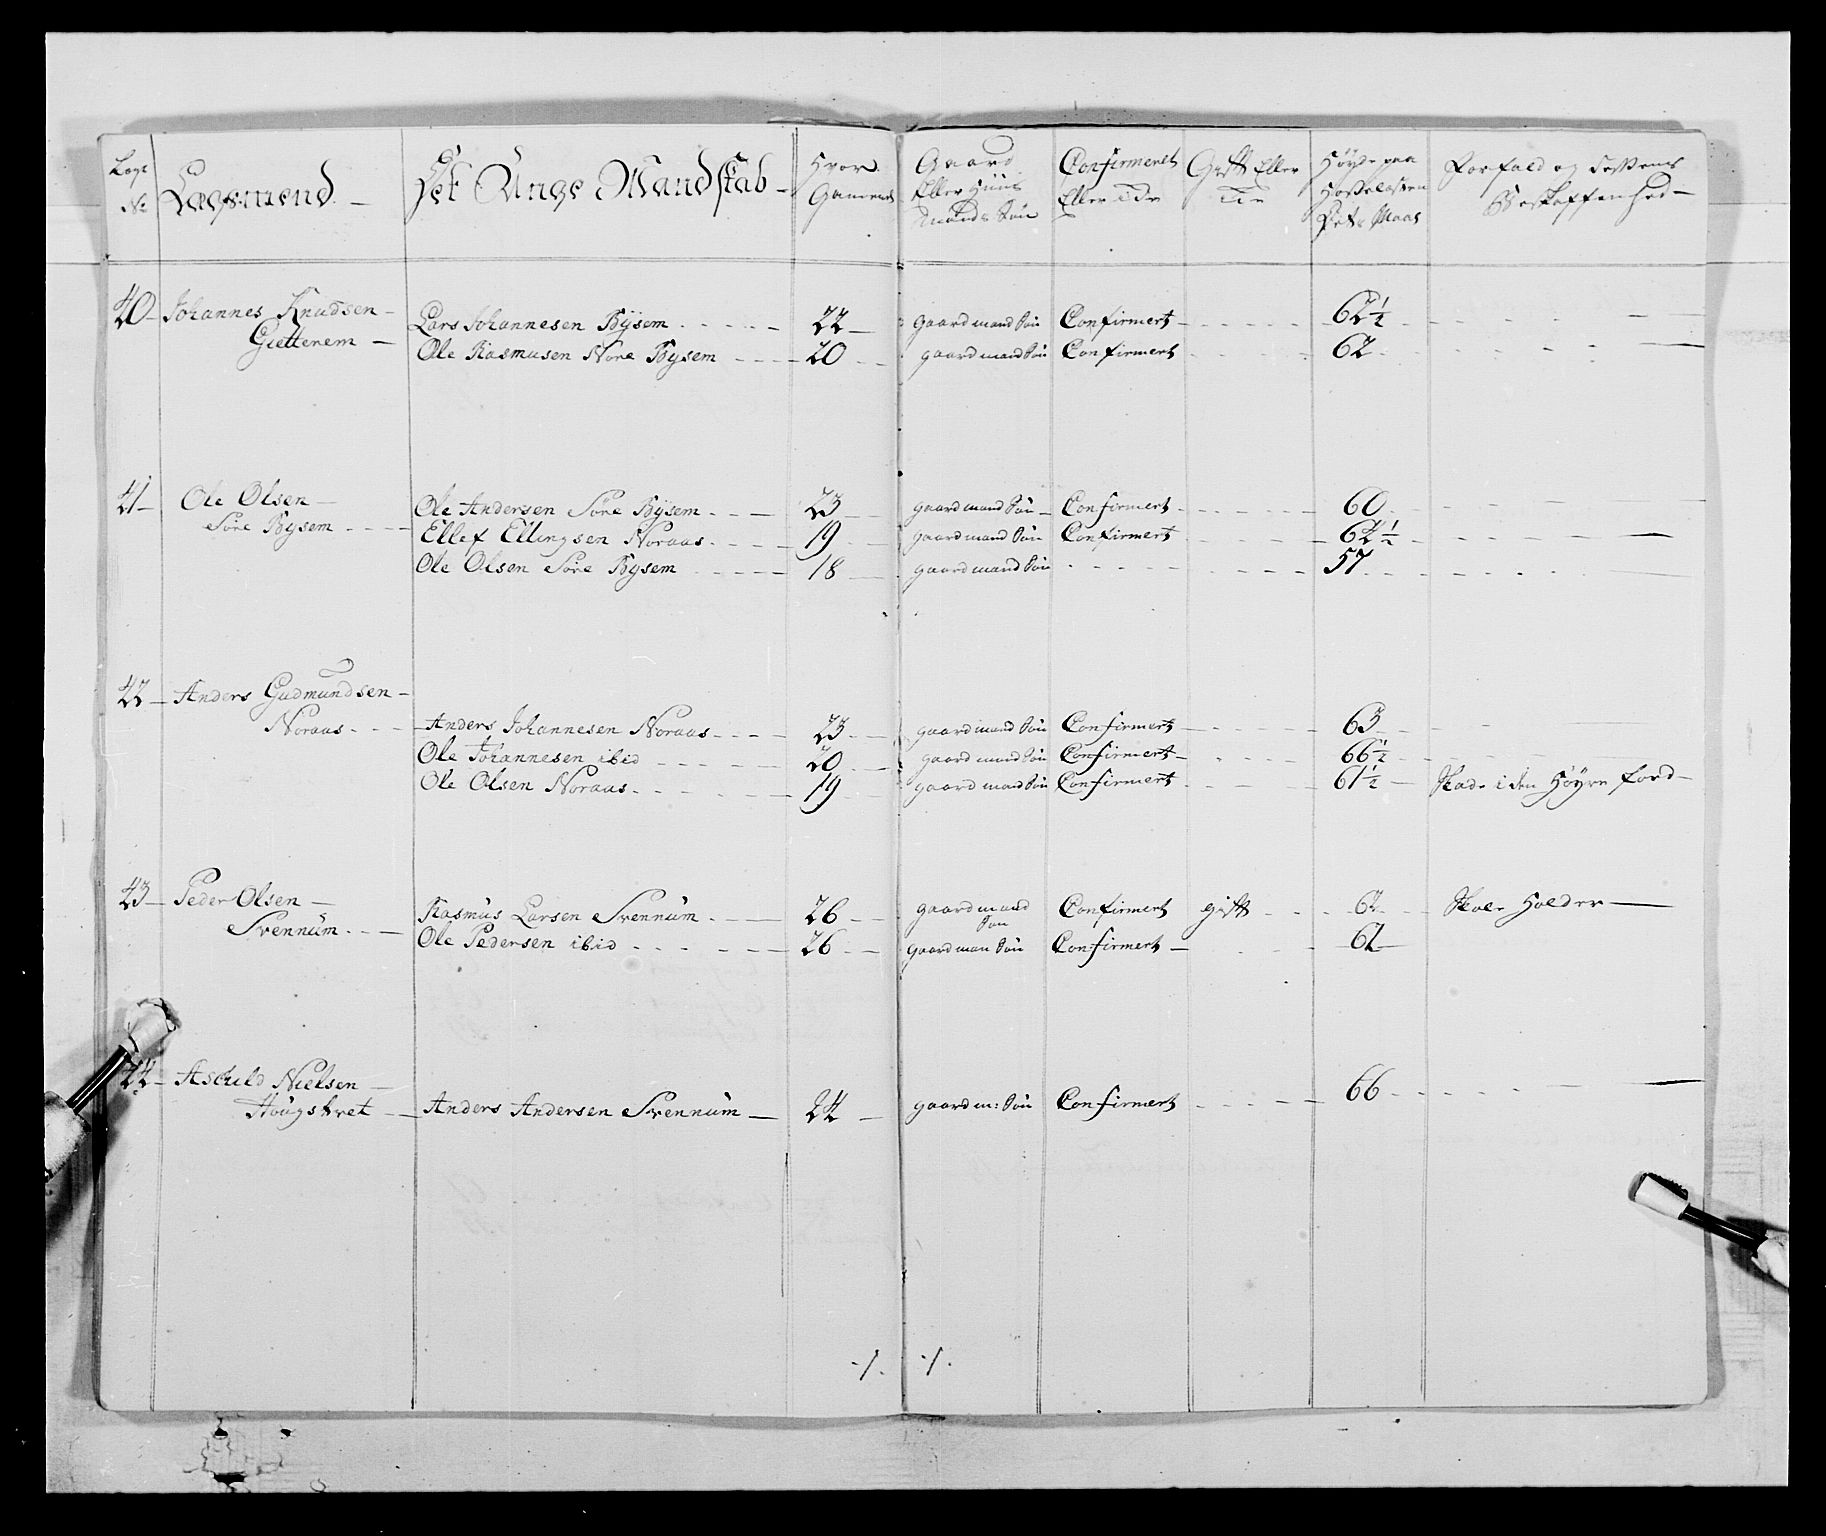 Lægs No | Lægsmend | Det Unge Mandskab | Hvor Gammel | Gaard Eller Huus mands Søn | Confirmeret Eller Ei | Gift Eller Ei | Høyde paa Hosselæsten Det Maas | Forfald og dessens Beskaffenhed
40 Johannes Knudsen
Gietterem
Lars Johannesen Bÿsem 22 gaardmand Søn Confirmert 62½
Ole Rasmusen Nore Bysem 20 gaardmand Søn Confirmert 62
41 Ole Olsen
Søre Bysem
Ole Andersen Søre Bysem 23 gaardmand Søn Confirmert 60
Ellef Ellingsen Noraas 19 gaardmand Søn Confirmert 62½
Ole Olsen Søre Bysem 18 gaardmand Søn 57
42 Anders Gudmundsen
Noraas
Anders Johannesen Noraas 23 gaardmand Søn Confirmert 63
Ole Johannesen ibid 20 gaardmand Søn Confirmert 66½
Ole Olsen Noraas 19 gaardmand Søn Confirmert 61½ Skade i den Høyre foed
43 Peder Olsen
Svennum
Rasmus Larsen Svennum 26 gaardmand Søn Confirmert gift 62 Skole Holder
Ole Pedersen ibid 26 gaardman Søn Confirmert 62
44 Aschild Nielsen
Hougstvet
Anders Andersen Svennum 24 gaardm: Søn Confirmert 66
·/. ·/.